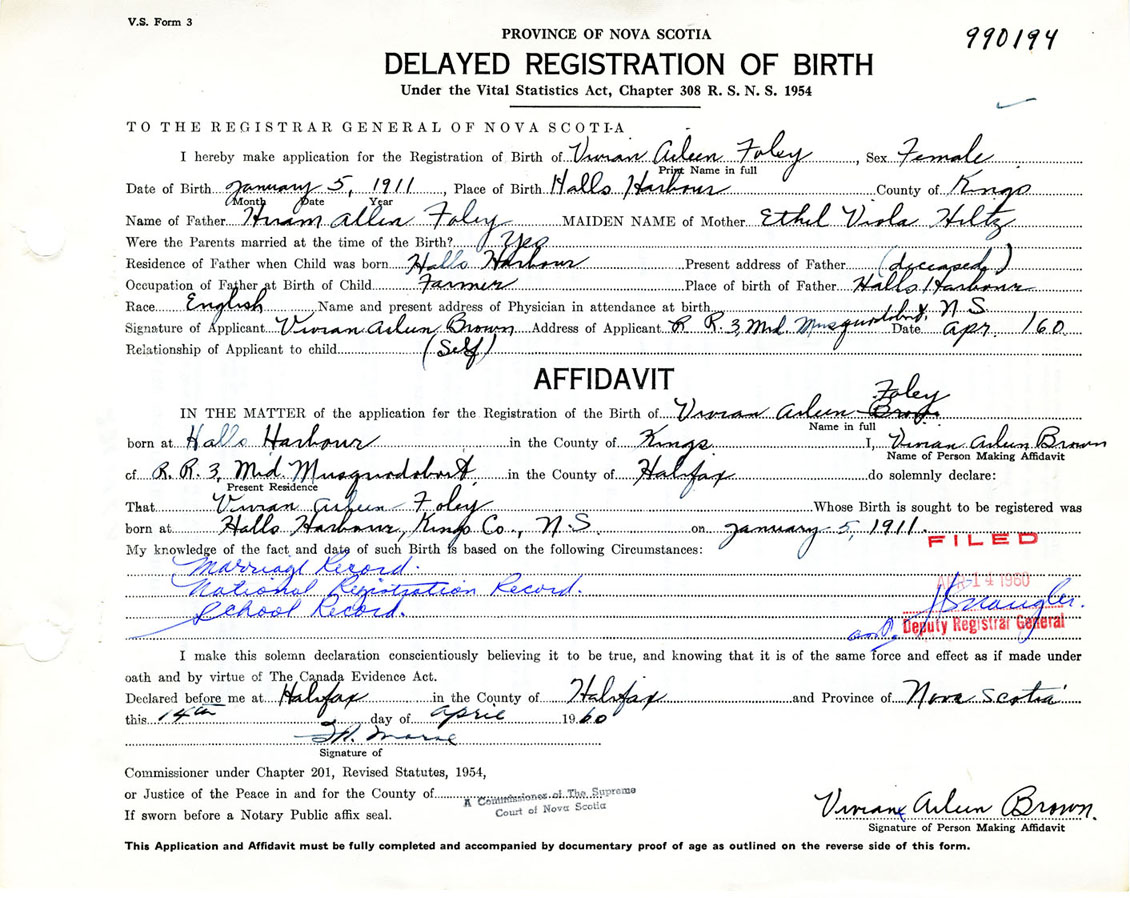 V.S. Form 3
990194
PROVINCE OF NOVA SCOTIA
DELAYED REGISTRATION OF BIRTH
Under the Vital Statistics Act, Chapter 308 R. S. N. S. 1954
TO THE REGISTRAR GENERAL OF NOVA SCOTIA
I hereby make application for the Registration of Birth of Vivian Aileen Foley, Sex Female
Print Name in full
Date of Birth January 5, 1911, Place of Birth Halls Harbour County of Kings
Month Date Year
Name of Father Hiram Allen Foley MAIDEN NAME of Mother Ethel Viola Hiltz
Were the Parents married at the time of the Birth? Yes
Residence of Father when Child was born Halls Harbour Present address of Father (deceased)
Occupation of Father at Birth of Child Farmer Place of birth of Father Halls Harbour
Race English Name and present address of Physician in attendance at birth N.S
Signature of Applicant Vivian Aileen Brown Address of Applicant R. R. 3, Mid. Musquodoboit, Date Apr 1960
Relationship of Applicant to child (Self)
AFFIDAVIT
Foley
IN THE MATTER of the application for the Registration of the Birth of Vivian Aileen Brown
Name in full
born at Halls Harbour in the County of Kings I, Vivian Aileen Brown
Name of Person Making Affidavit
of R. R. 3, Mid. Musquodoboit in the County of Halifax do solemnly declare:
Present Residence
That Vivian Aileen Foley Whose Birth is sought to be registered was
born at Halls Harbour, Kings Co., N.S. on January 5, 1911.
FILED
My knowledge of the fact and date of such Birth is based on the following Circumstances:
Marriage Record.
National Registration Record.
APR 14 1960
School Record.
Deputy Registrar General
I make this solemn declaration conscientiously believing it to be true, and knowing that it is of the same force and effect as if made under
oath and by virtue of The Canada Evidence Act.
Declared before me at Halifax in the County of Halifax and Province of Nova Scotia
this 14th day of April 1960
Signature of
Commissioner under Chapter 201, Revised Statutes, 1954,
or Justice of the Peace in and for the County of A Commissioner of The Supreme
Court of Nova Scotia
If sworn before a Notary Public affix seal.
Vivian Aileen Brown.
Signature of Person Making Affidavit
This Application and Affidavit must be fully completed and accompanied by documentary proof of age as outlined on the reverse side of this form.